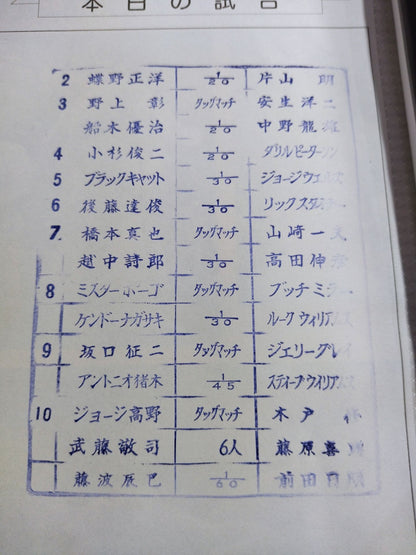 本日の試合
2 蝶野正洋 1/20 片山 明
3 野上 彰 タッグマッチ 安生洋二
船木優治 1/20 中野龍雄
4 小杉俊二 1/20 ダリルピーターソン
5 ブラックキャット 1/30 ジョージウェルズ
6 後藤達俊 1/30 リックスタイナー
7. 橋本真也 タッグマッチ 山崎一夫
越中詩郎 1/30 高田伸彦
8 ミスターポーゴ タッグマッチ ブッチミラー
ケンドーナガサキ 1/30 ルークウィリアムス
9 坂口征二 タッグマッチ ジェリーグレイ
アントニオ猪木 1/45 スティーブウィリアムス
10 ジョージ高野 タッグマッチ 木戸 修
武藤敬司 6人 藤原喜明
藤波辰巳 1/60 前田日明